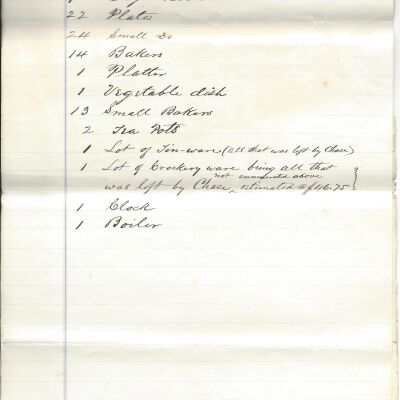 22 Plates
24 Small Do
14 Bakers
1 Platter
1 Vegetable dish
13 Small Bakers
2 Tea Pots
1 Lot of Tin-ware (all that was left by Chase)
1 Lot of Crockery ware being all that
not enumerated above
was left by Chase, estimated at $46.75
1 Clock
1 Boiler